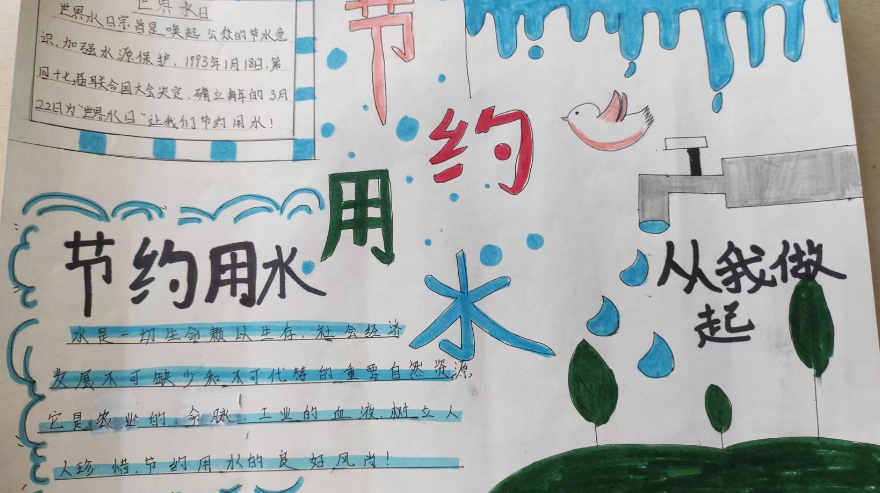 世界水日
世界水日宗旨是唤起公众的节水意
识,加强水源保护。1993年1月18日,第
四十七届联合国大会决定,确立每年的3月
22日为"世界水日"让我们节约用水!
节
约
用
水
节约用水
水是一切生命赖以生存,社会经济
发展不可缺少和不可代替的重要自然资源
它是农业的命脉,工业的血液,树立人
人珍惜,节约用水的良好风尚!
从我做
起